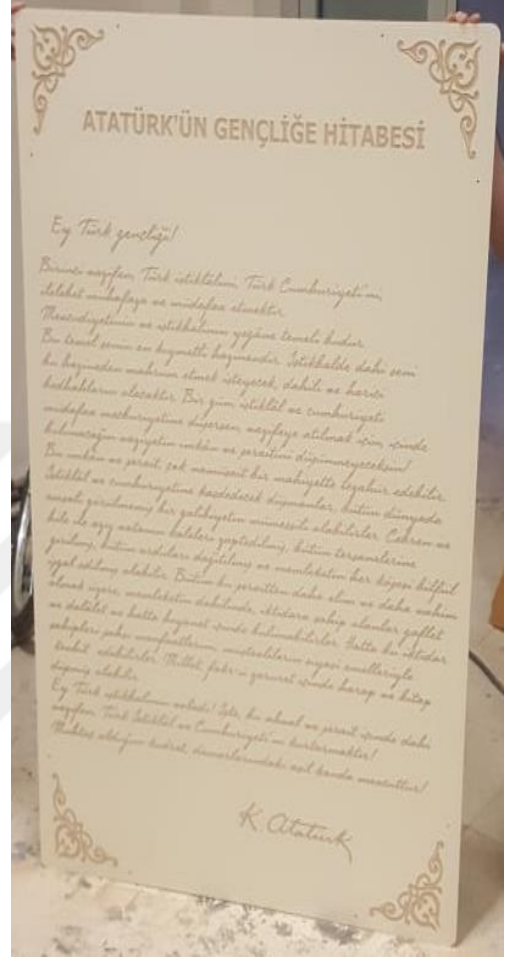 ATATÜRK'ÜN GENÇLİĞE HİTABESİ
Ey Türk gençliği!
Birinci vazifen, Türk istiklâlini, Türk Cumhuriyeti'ni,
ilelebet muhafaza ve müdafaa etmektir.
Mevcudiyetinin ve istikbalinin yegâne temeli budur.
Bu temel senin en kıymetli hazinendir. İstikbalde dahi seni
bu hazineden mahrum etmek isteyecek, dahili ve harici
bedhahların olacaktır. Bir gün, istiklâl ve cumhuriyeti
müdafaa mecburiyetine düşersen, vazifeye atılmak için, içinde
bulunacağın vaziyetin imkân ve şeraitini düşünmeyeceksin!
Bu imkân ve şerait, çok namüsait bir mahiyette tezahür edebilir.
İstiklâl ve cumhuriyetine kastedecek düşmanlar, bütün dünyada
emsali görülmemiş bir galibiyetin mümessili olabilirler. Cebren ve
hile ile aziz vatanın kaleleri zaptedilmiş, bütün tersanelerine
girilmiş, bütün orduları dağıtılmış ve memleketin her köşesi bilfiil
işgal edilmiş olabilir. Bütün bu şeraitten daha elim ve daha vahim
olmak üzere, memleketin dahilinde, iktidara sahip olanlar gaflet
ve dalâlet ve hatta hıyanet içinde bulunabilirler. Hatta bu iktidar
sahipleri şahsi menfaatlerini, müstevlilerin siyasi emelleriyle
tevhit edebilirler. Millet, fakr-u zaruret içinde harap ve bitap
düşmüş olabilir.
Ey Türk istikbalinin evladı! İşte, bu ahval ve şerait içinde dahi
vazifen, Türk İstiklâl ve Cumhuriyeti'ni kurtarmaktır!
Muhtaç olduğun kudret, damarlarındaki asil kanda mevcuttur!
K. Atatürk